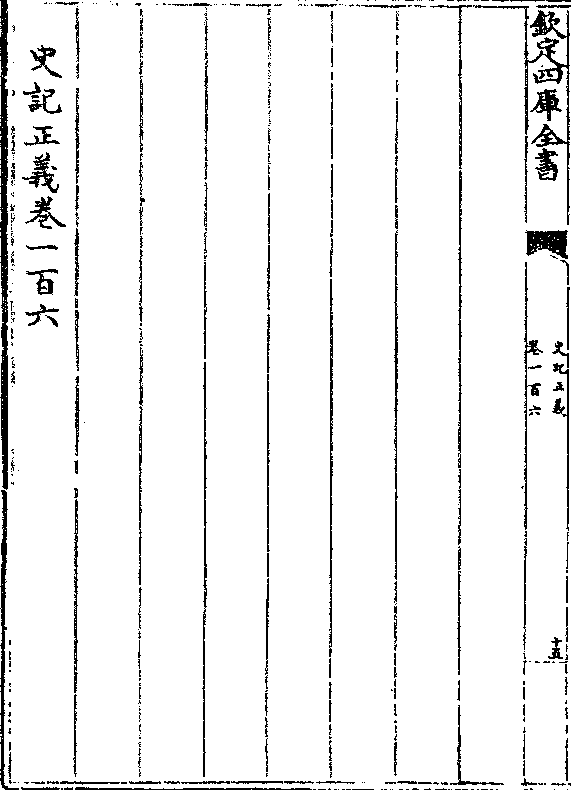 欽定四庫全書
史記正義
卷一百六
十五
史記正義卷一百六